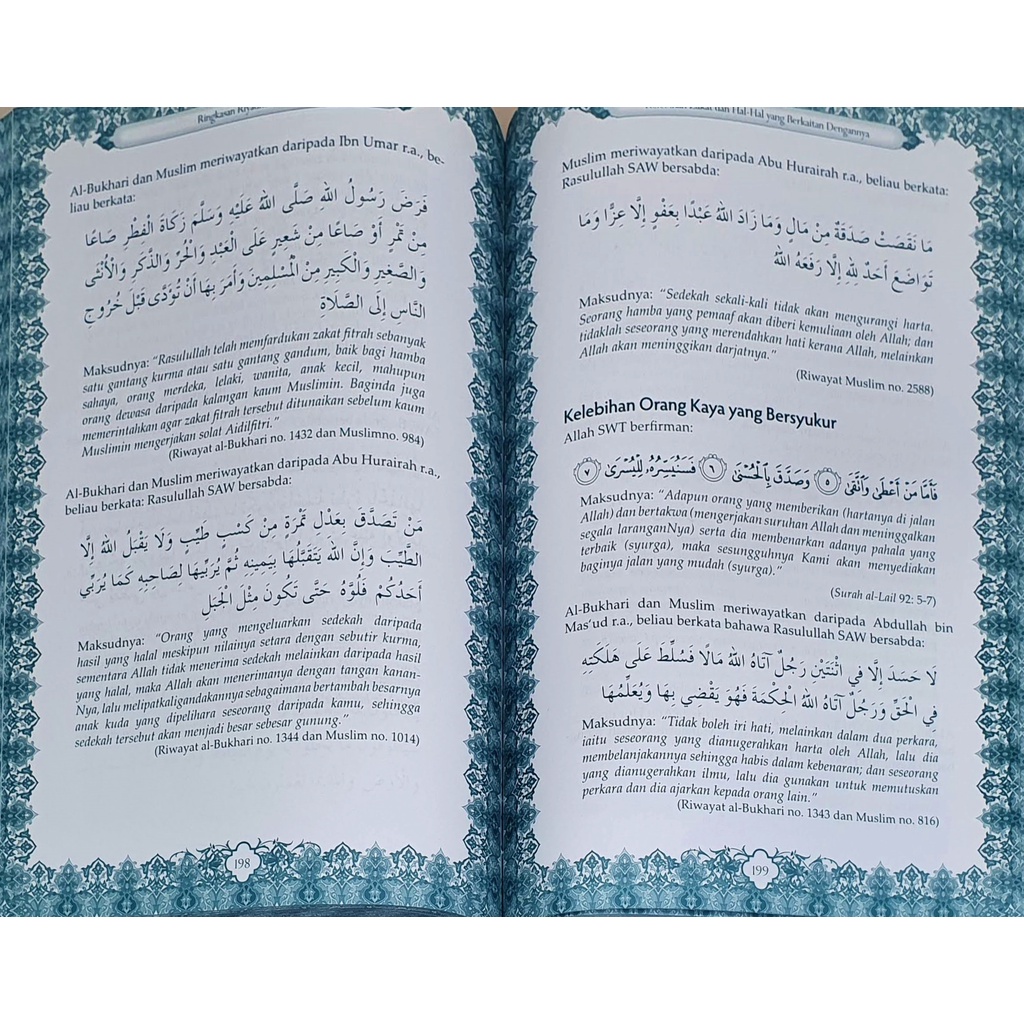 Ringkasan
Al-Bukhari dan Muslim meriwayatkan daripada Ibn Umar r.a., be-
liau berkata:
فَرَضَ رَسُولُ اللهِ صَلَّى اللهُ عَلَيْهِ وَسَلَّمَ زَكَاةَ الْفِطْرِ صَاعًا
مِنْ تَمْرٍ أَوْ صَاعًا مِنْ شَعِيرٍ عَلَى الْعَبْدِ وَالْحُرِّ وَالذَّكَرِ وَالْأُنْثَى
وَالصَّغِيرِ وَالْكَبِيرِ مِنَ الْمُسْلِمِينَ وَأَمَرَ بِهَا أَنْ تُؤَدَّى قَبْلَ خُرُوجِ
النَّاسِ إِلَى الصَّلَاةِ
Maksudnya: “Rasulullah telah memfardukan zakat fitrah sebanyak
satu gantang kurma atau satu gantang gandum, baik bagi hamba
sahaya, orang merdeka, lelaki, wanita, anak kecil, mahupun
orang dewasa daripada kalangan kaum Muslimin. Baginda juga
memerintahkan agar zakat fitrah tersebut ditunaikan sebelum kaum
Muslimin mengerjakan solat Aidilfitri.”
(Riwayat al-Bukhari no. 1432 dan Muslimno. 984)
Al-Bukhari dan Muslim meriwayatkan daripada Abu Hurairah r.a.,
beliau berkata: Rasulullah SAW bersabda:
مَنْ تَصَدَّقَ بِعَدْلِ تَمْرَةٍ مِنْ كَسْبٍ طَيِّبٍ وَلَا يَقْبَلُ اللهُ إِلَّا
الطَّيِّبَ وَإِنَّ اللهَ يَتَقَبَّلُهَا بِيَمِينِهِ ثُمَّ يُرَبِّيهَا لِصَاحِبِهِ كَمَا يُرَبِّي
أَحَدُكُمْ فَلُوَّهُ حَتَّى تَكُونَ مِثْلَ الْجَبَلِ
Maksudnya: “Orang yang mengeluarkan sedekah daripada
hasil yang halal meskipun nilainya setara dengan sebutir kurma,
sementara Allah tidak menerima sedekah melainkan daripada hasil
yang halal, maka Allah akan menerimanya dengan tangan kanan-
Nya, lalu melipatkaligandakannya sebagaimana bertambah besarnya
anak kuda yang dipelihara seseorang daripada kamu, sehingga
sedekah tersebut akan menjadi besar sebesar gunung.”
(Riwayat al-Bukhari no. 1344 dan Muslim no. 1014)
198
dan Hal-Hal yang Berkaitan Dengannya
Muslim meriwayatkan daripada Abu Hurairah r.a., beliau berkata:
Rasulullah SAW bersabda:
مَا نَقَصَتْ صَدَقَةٌ مِنْ مَالٍ وَمَا زَادَ اللهُ عَبْدًا بِعَفْوٍ إِلَّا عِزًّا وَمَا
تَوَاضَعَ أَحَدٌ لِلهِ إِلَّا رَفَعَهُ اللهُ
Maksudnya: “Sedekah sekali-kali tidak akan mengurangi harta.
Seorang hamba yang pemaaf akan diberi kemuliaan oleh Allah; dan
tidaklah seseorang yang merendahkan hati kerana Allah, melainkan
Allah akan meninggikan darjatnya.”
(Riwayat Muslim no. 2588)
Kelebihan Orang Kaya yang Bersyukur
Allah SWT berfirman:
فَأَمَّا مَنْ أَعْطَىٰ وَاتَّقَىٰ ٥ وَصَدَّقَ بِالْحُسْنَىٰ ٦ فَسَنُيَسِّرُهُ لِلْيُسْرَىٰ ٧
Maksudnya: “Adapun orang yang memberikan (hartanya di jalan
Allah) dan bertakwa (mengerjakan suruhan Allah dan meninggalkan
segala laranganNya) serta dia membenarkan adanya pahala yang
terbaik (syurga), maka sesungguhnya Kami akan menyediakan
baginya jalan yang mudah (syurga).”
(Surah al-Lail 92: 5-7)
Al-Bukhari dan Muslim meriwayatkan daripada Abdullah bin
Mas‘ud r.a., beliau berkata bahawa Rasulullah SAW bersabda:
لَا حَسَدَ إِلَّا فِي اثْنَتَيْنِ رَجُلٌ آتَاهُ اللهُ مَالًا فَسُلِّطَ عَلَى هَلَكَتِهِ
فِي الْحَقِّ وَرَجُلٌ آتَاهُ اللهُ الْحِكْمَةَ فَهُوَ يَقْضِي بِهَا وَيُعَلِّمُهَا
Maksudnya: “Tidak boleh iri hati, melainkan dalam dua perkara,
iaitu seseorang yang dianugerahkan harta oleh Allah, lalu dia
membelanjakannya sehingga habis dalam kebenaran; dan seseorang
yang dianugerahkan ilmu, lalu dia gunakan untuk memutuskan
perkara dan dia ajarkan kepada orang lain.”
(Riwayat al-Bukhari no. 1343 dan Muslim no. 816)
199